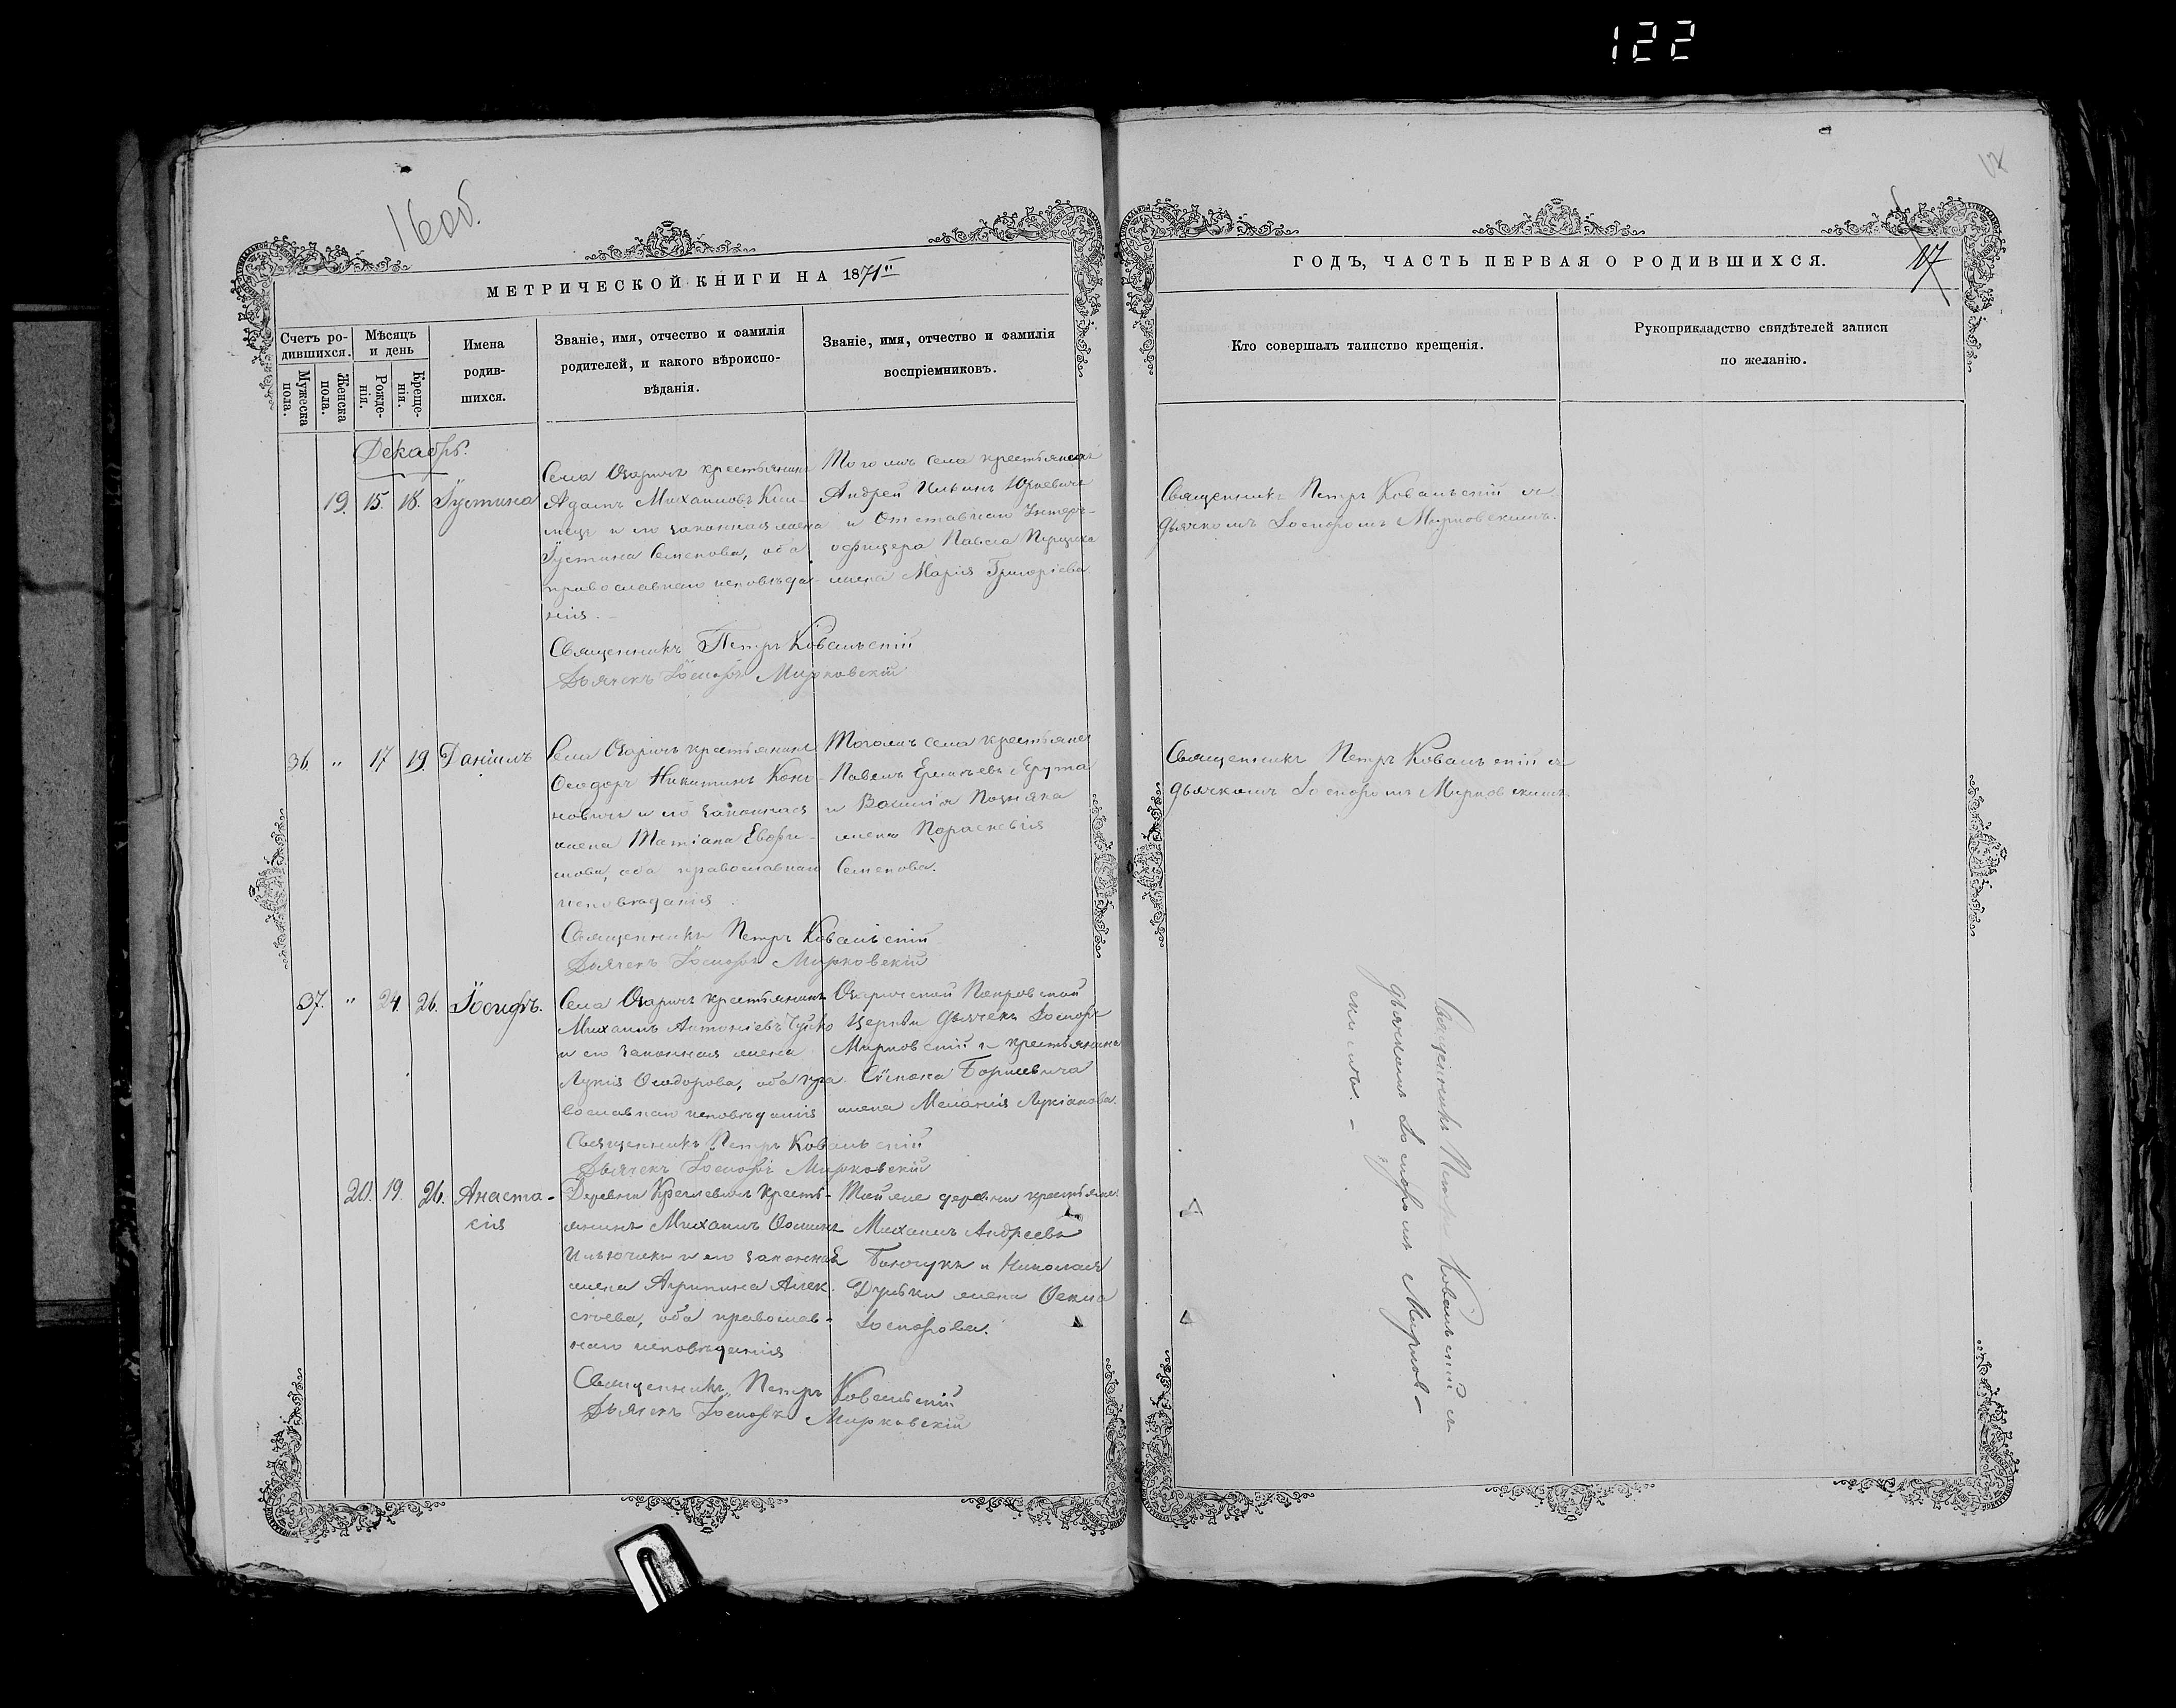 122
16 об.
17
МЕТРИЧЕСКОЙ КНИГИ НА 1871й
ГОДЪ, ЧАСТЬ ПЕРВАЯ О РОДИВШИХСЯ.
17
Счетъ ро-
дившихся.
Мужеска
пола.
Женска
пола.
Мѣсяцъ
и день
Рожде-
нія.
Креще-
нія.
Имена
родив-
шихся.
Званіе, имя, отчество и фамилія
родителей, и какого вѣроиспо-
вѣданія.
Званіе, имя, отчество и фамилія
воспріемниковъ.
Кто совершалъ таинство крещенія.
Рукоприкладство свидѣтелей записи
по желанію.
Декабрь.
19. 15. 18. Іустина
Села Озаричъ крестьянинъ
Адамъ Михаиловъ
и его законная жена
Іустина Семенова, оба
православнаго исповѣда-
нія.
Того жъ села крестьянинъ
Андрей Ильинъ Юркевичъ
и Отставнаго Унтеръ-
офицера Павла
жена Марія Григоріева.
Священникъ Петръ Ковальскій съ
дьячкомъ Іосифомъ Мирковскимъ.
Священникъ Петръ Ковальскій
Дьячекъ Іосифъ Мирковскій
36. " 17 19. Даніилъ
Села Озаричъ крестьянинъ
Ѳеодоръ Никитинъ Коно-
новичъ и его законная
жена Татіана Евфи-
мова, оба православнаго
исповѣданія
Того жъ села крестьяне
Павелъ
и Василія Позняка
жена Параскевія
Семенова.
Священникъ Петръ Ковальскій съ
дьячкомъ Іосифомъ Мирковскимъ.
Священникъ Петръ Ковальскій
Дьячекъ Іосифъ Мирковскій
37. " 24. 26. Іосифъ.
Села Озаричъ крестьянинъ
Михаилъ Антоніевъ Чуйко
и его законная жена
Лукія Ѳеодорова, оба пра-
вославнаго исповѣданія
Озаричской Покровской
церкви дьячекъ Іосифъ
Мирковскій и крестьянина
Борисевича
жена Меланія Лукіанова.
Священникъ Петръ Ковальскій съ
дьячкомъ Іосифомъ Мирков-
скимъ. -
Священникъ Петръ Ковальскій
Дьячекъ Іосифъ Мирковскій
20. 19. 26. Анаста-
сія
Деревни крестья-
янинъ Михаилъ Ѳоминъ
Ильючикъ и его законная
жена Агрипина Алек-
сѣева, оба православ-
наго исповѣданія
Той же деревни крестьяне
Михаилъ Андреевъ
и Николая
жена Ѳекла
Іосифова.
Священникъ Петръ Ковальскій
Дьячекъ Іосифъ Мирковскій